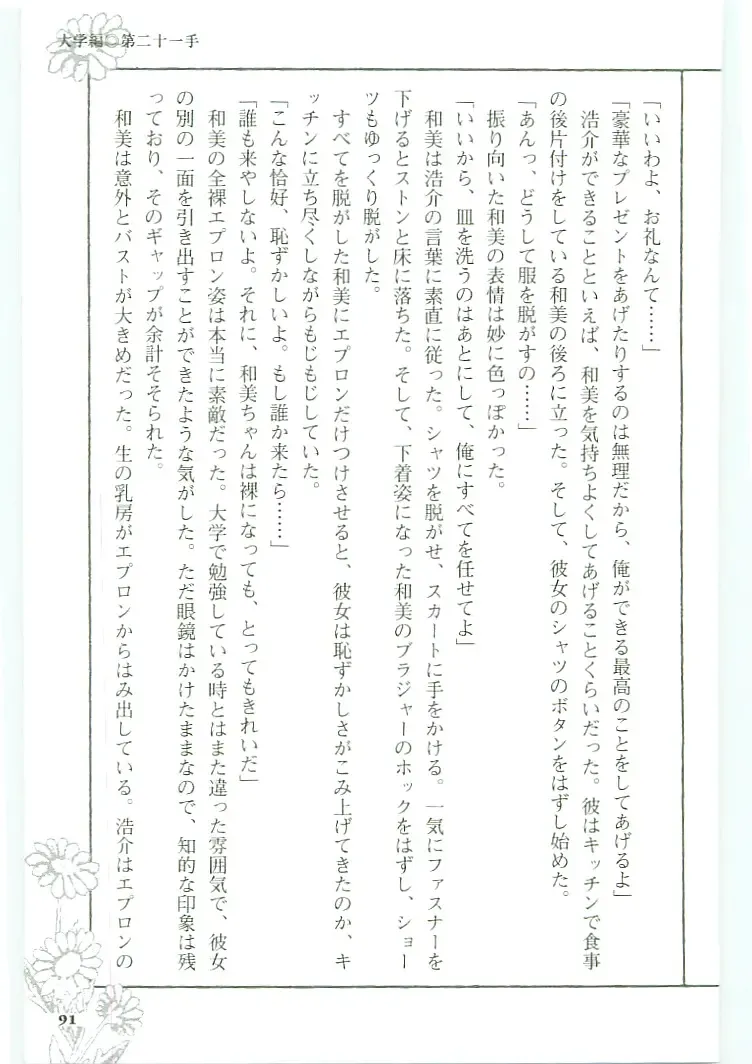 大学編◎第二十一手
「いいわよ、お礼なんて……」
「豪華なプレゼントをあげたりするのは無理だから、俺ができる最高のことをしてあげるよ」
浩介ができることといえば、和美を気持ちよくしてあげることくらいだった。彼はキッチンで食事
の後片付けをしている和美の後ろに立った。そして、彼女のシャツのボタンをはずし始めた。
「あんっ、どうして服を脱がすの……」
振り向いた和美の表情は妙に色っぽかった。
「いいから、皿を洗うのはあとにして、俺にすべてを任せてよ」
和美は浩介の言葉に素直に従った。シャツを脱がせ、スカートに手をかける。一気にファスナーを
下げるとストンと床に落ちた。そして、下着姿になった和美のブラジャーのホックをはずし、ショー
ツもゆっくり脱がした。
すべてを脱がした和美にエプロンだけつけさせると、彼女は恥ずかしさがこみ上げてきたのか、キ
ッチンに立ち尽くしながらもじもじしていた。
「こんな恰好、恥ずかしいよ。もし誰か来たら……」
「誰も来やしないよ。それに、和美ちゃんは裸になっても、とってもきれいだ」
和美の全裸エプロン姿は本当に素敵だった。大学で勉強している時とはまた違った雰囲気で、彼女
の別の一面を引き出すことができたような気がした。ただ眼鏡はかけたままなので、知的な印象は残
っており、そのギャップが余計そそられた。
和美は意外とバストが大きめだった。生の乳房がエプロンからはみ出している。浩介はエプロンの
91